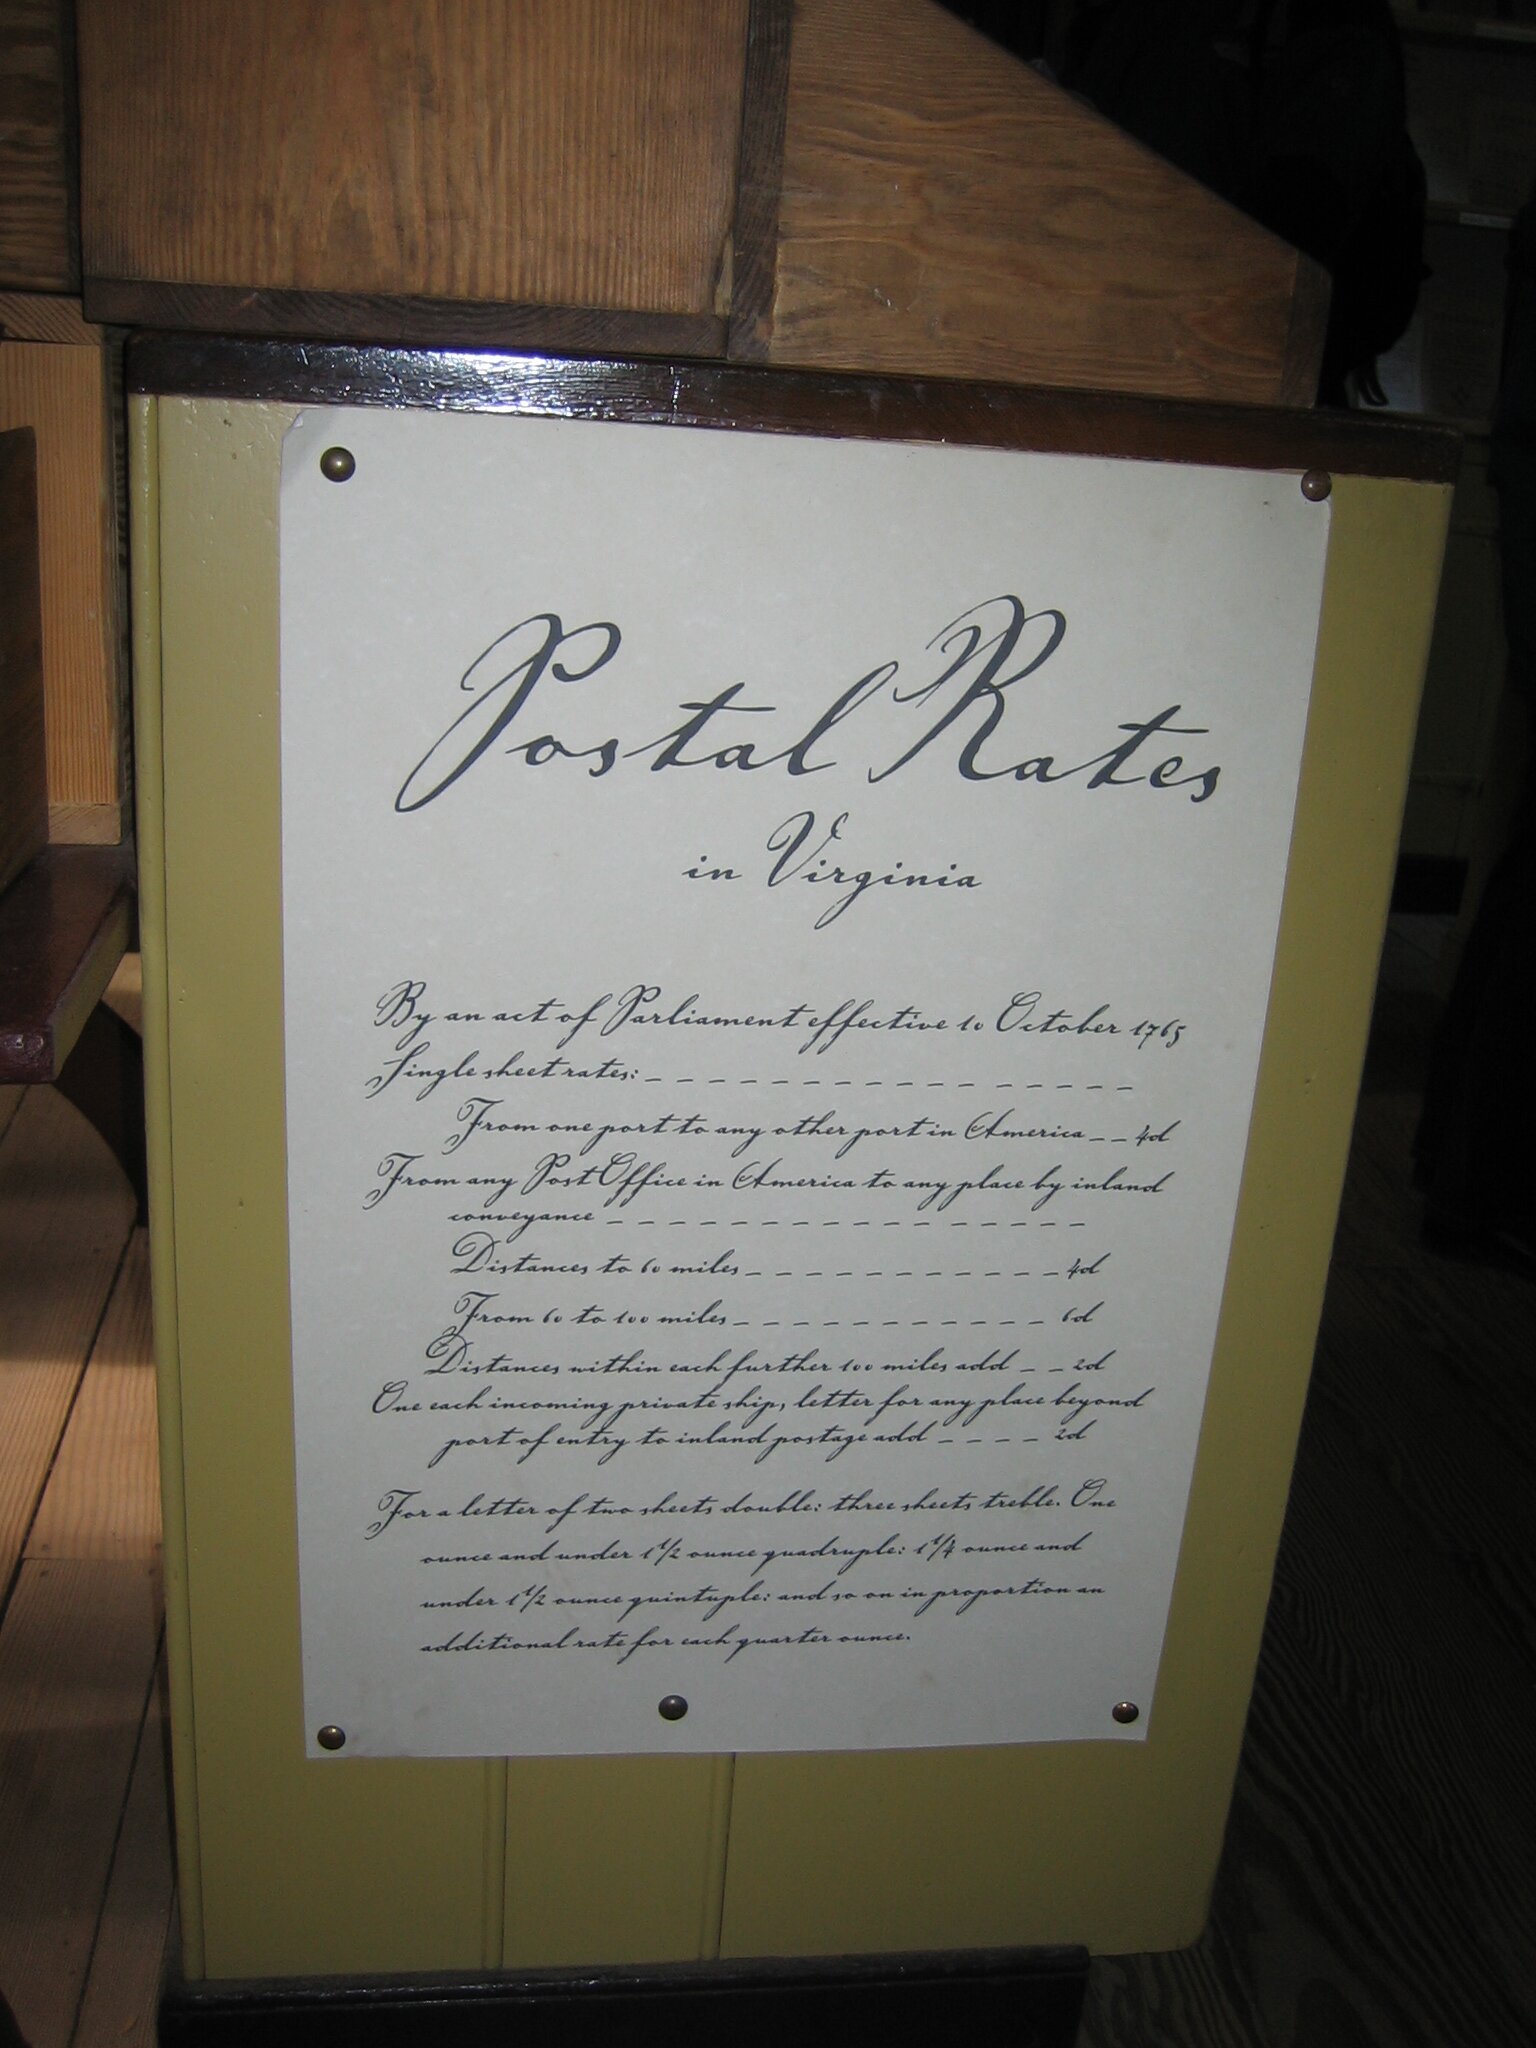 Postal Rates
in Virginia
By an act of Parliament effective 10 October 1765
Single sheet rates: _ _ _ _ _ _ _ _ _ _ _ _ _ _ _ _
From one port to any other port in America _ _ 4d
From any Post Office in America to any place by inland
conveyance _ _ _ _ _ _ _ _ _ _ _ _ _ _ _ _
Distances to 60 miles _ _ _ _ _ _ _ _ _ _ _ 4d
From 60 to 100 miles _ _ _ _ _ _ _ _ _ _ _ 6d
Distances within each further 100 miles add _ _ 2d
One each incoming private ship, letter for any place beyond
port of entry to inland postage add _ _ _ _ 2d
For a letter of two sheets double: three sheets treble. One
ounce and under 1 1/2 ounce quadruple: 1 1/4 ounce and
under 1 1/2 ounce quintuple: and so on in proportion an
additional rate for each quarter ounce.